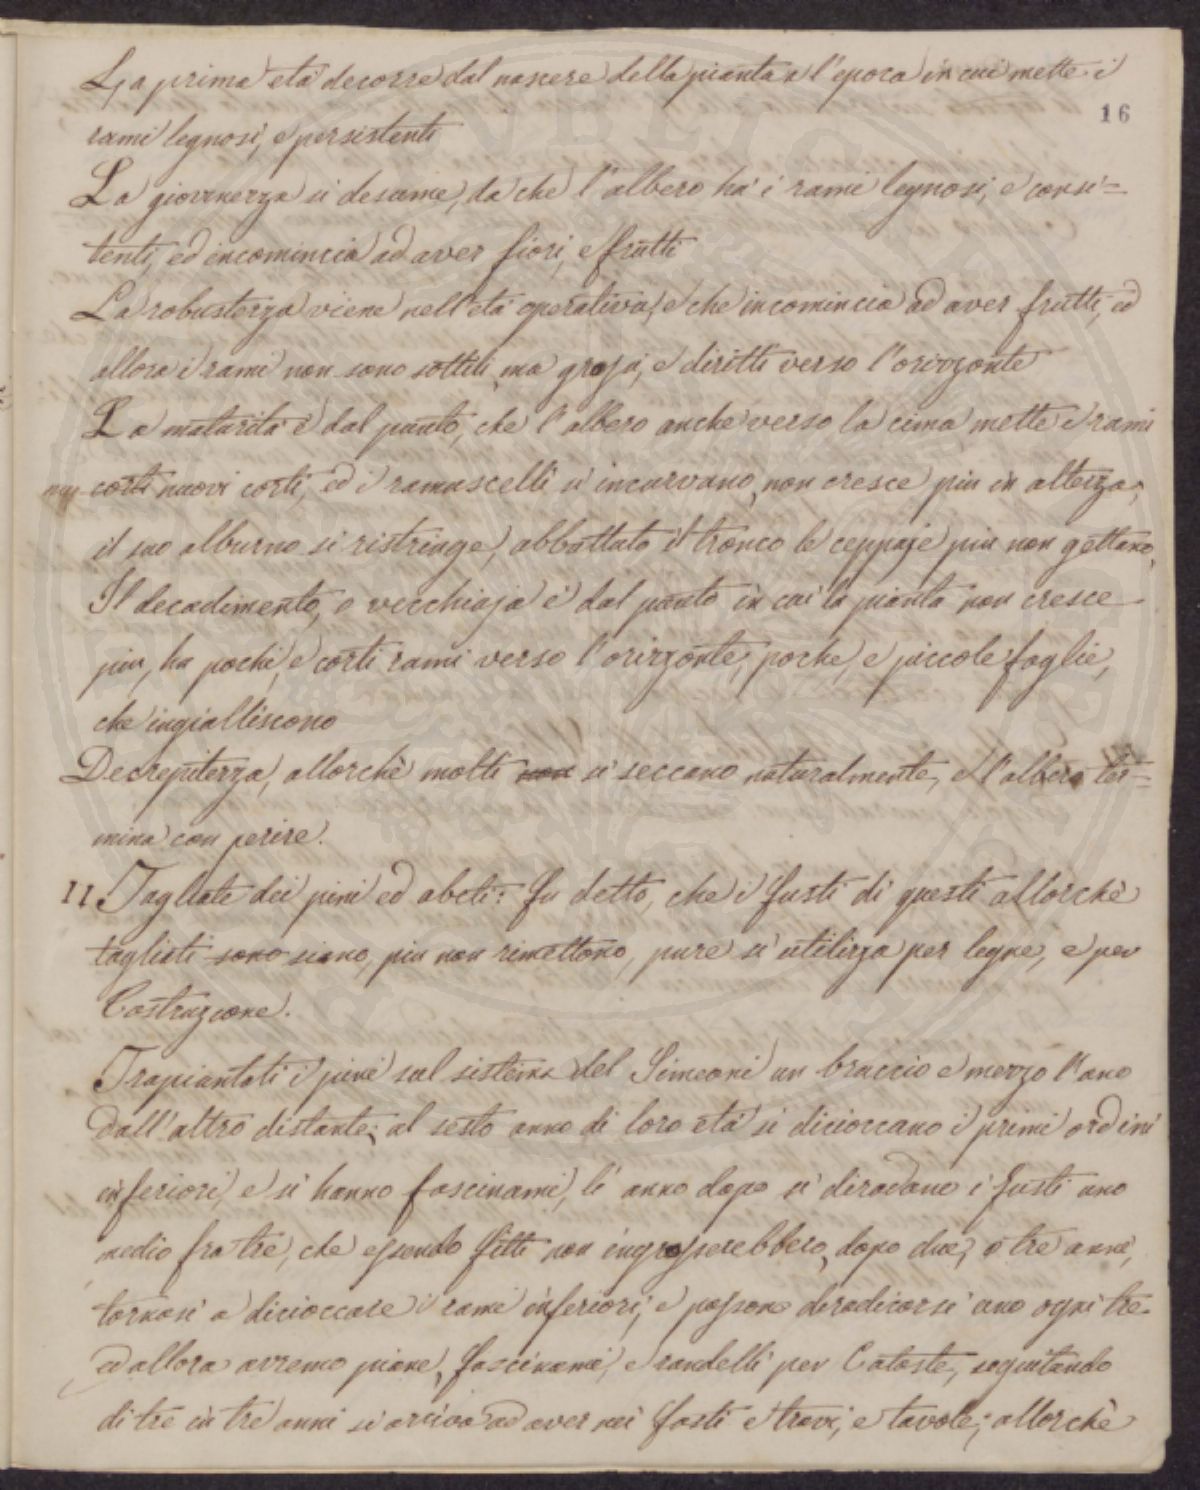 La prima età decorre dal nascere della pianta a l'epoca in cui mette i
16
rami legnosi, e persistenti
La giovinezza si desume, da che l'albero ha i rami legnosi, e consi=
tenti, ed incomincia ad aver fiori, e frutti
La robustezza viene nell'età operativa, e che incomincia ad aver frutti, ed
allora i rami non sono sottili, ma grossi, e diritti verso l'orizzonte
La maturità è dal punto, che l'albero anche verso la cima mette i rami
corti nuovi corti, ed i ramuscelli si incurvano, non cresce piu in altezza,
il suo alburno si ristringe, abbattuto il tronco le ceppaje piu non gettano,
Il decadimento, o vecchiaja è dal punto in cui la pianta non cresce
piu, ha pochi, e corti rami verso l'orizzonte, poche, e piccole foglie,
che ingialliscono
Decrepitezza, allorchè molti non si seccano naturalmente, e l'albero ter=
mina con perire.
11 Tagliate dei pini ed abeti: fu detto, che i fusti di questi allorchè
tagliati sono siano, piu non rimettono, pure si utilizza per legne, e per
Costruzione.
Trapiantati i pini sul sistema del Simeoni un braccio e mezzo l'uno
dall'altro distante, al sesto anno di loro età si dicioccano i primi ordini
inferiori, e si hanno fascinami, li anno dopo si diradano i fusti uno
medio fra tre, che essendo fitti non ingrosserebbero, dopo due, o tre anni,
tornasi a dicioccare i rami inferiori, e possono deradicarsi uno ogni tre.
ed allora avremo piane, fascinami, e randelli per Cataste, seguitando
di tre in tre anni si arriva ad aver nei fusti e travi, e tavole, allorchè